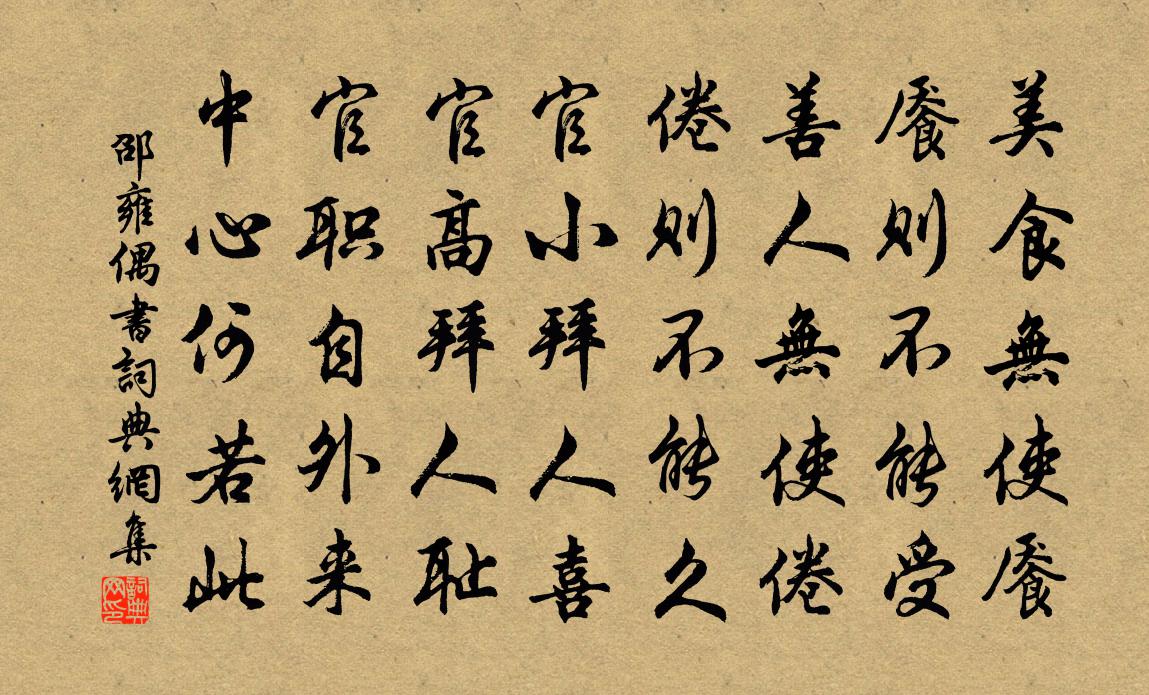 美食無使饜
饜则不能受
善人無使倦
倦则不能久
官小拜人喜
官高拜人耻
官职自外来
中心何若此
邵雍偶書詞典網集
詞典网印